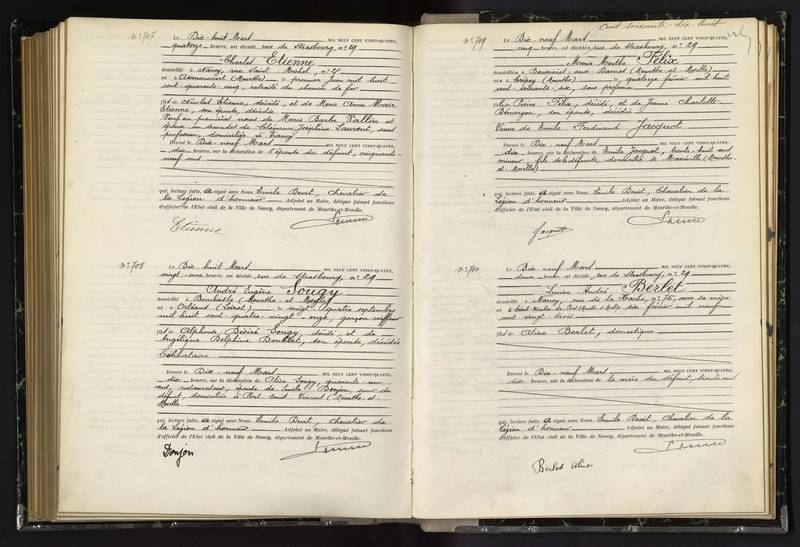 N° 707
Le Dix-huit Mars MIL NEUF CENT VINGT-QUATRE,
quatorze heures, est décédé rue de Strasbourg, n° 29
Charles Etienne
domicilié à Nancy, rue Saint Michel, n°
né à (Meurthe) le premier Juin mil huit
cent quarante-cinq, retraité du chemin de fer
fils de Nicolas Etienne, décédé, et de Marie Anne
Etienne, son épouse, décédée
Veuf en premières noces de Marie Barbe Vallin et
époux en secondes de Clémence Joséphine Laurent, sans
profession, domiciliée à Nancy
Dressé le Dix-neuf Mars MIL NEUF CENT VINGT-QUATRE,
dix heures, sur la déclaration de l'épouse du défunt, cinquante-
neuf ans
qui, lecture faite, a signé avec Nous Emile Devit, Chevalier de
la Légion d'honneur Adjoint au Maire, délégué faisant fonctions
d'officier de l'Etat civil de la Ville de Nancy, département de Meurthe-et-Moselle.
Etienne
N° 708
Le Dix-huit Mars MIL NEUF CENT VINGT-QUATRE,
vingt-une heures, est décédé rue de Strasbourg, n° 29
André Eugène Sougy
domicilié à Dombasle (Meurthe-et-Moselle)
né à Orléans (Loiret) le vingt-quatre septembre
mil huit cent quatre vingt onze, garçon coiffeur
fils de Alphonse Désiré Sougy, décédé, et de
Angélique Delphine Doublet, son épouse, décédée
Célibataire
Dressé le Dix-neuf Mars MIL NEUF CENT VINGT-QUATRE,
dix heures, sur la déclaration de Alice Sougy, quarante-un
ans, restaurateur, épouse de Emile Donjon, sœur du
défunt, domiciliée à Pont-Saint-Vincent (Meurthe-et-
Moselle)
qui, lecture faite, a signé avec Nous Emile Devit, Chevalier de
la Légion d'honneur Adjoint au Maire, délégué faisant fonctions
d'officier de l'Etat civil de la Ville de Nancy, département de Meurthe-et-Moselle.
Donjon
Cent soixante-dix-huit
N° 709
Le Dix-neuf Mars MIL NEUF CENT VINGT-QUATRE,
cinq heures, est décédée rue de Strasbourg, n° 29
Marie Marthe Félix
domiciliée à (Meurthe-et-Moselle)
née à Crépey (Meurthe) le quatorze février mil huit
cent soixante-six, sans profession
fille de Pierre Félix, décédé, et de Jeanne Charlotte
son épouse, décédée
Veuve de Emile Ferdinand Jacquot
Dressé le Dix-neuf Mars MIL NEUF CENT VINGT-QUATRE,
dix heures, sur la déclaration de Emile Jacquot, trente-huit ans
mineur, fils de la défunte, domicilié à (Meurthe-
et-Moselle)
qui, lecture faite, a signé avec Nous Emile Devit, Chevalier de la
Légion d'honneur Adjoint au Maire, délégué faisant fonctions
d'officier de l'Etat civil de la Ville de Nancy, département de Meurthe-et-Moselle.
Jacquot
N° 710
Le Dix-neuf Mars MIL NEUF CENT VINGT-QUATRE,
deux heures, est décédé rue de Strasbourg, n° 29
Lucien André Berlet
domicilié à Nancy, rue de la n° 76, avec sa mère
né à Saint-Nicolas-de-Port (Meurthe-et-Moselle) le dix février mil neuf
cent vingt trois
fils de Aline Berlet, domestique
Dressé le Dix-neuf Mars MIL NEUF CENT VINGT-QUATRE,
dix heures, sur la déclaration de la mère du défunt, trente ans
qui, lecture faite, a signé avec Nous Emile Devit, Chevalier de la
Légion d'honneur Adjoint au Maire, délégué faisant fonctions
d'officier de l'Etat civil de la Ville de Nancy, département de Meurthe-et-Moselle.
Berlet Aline